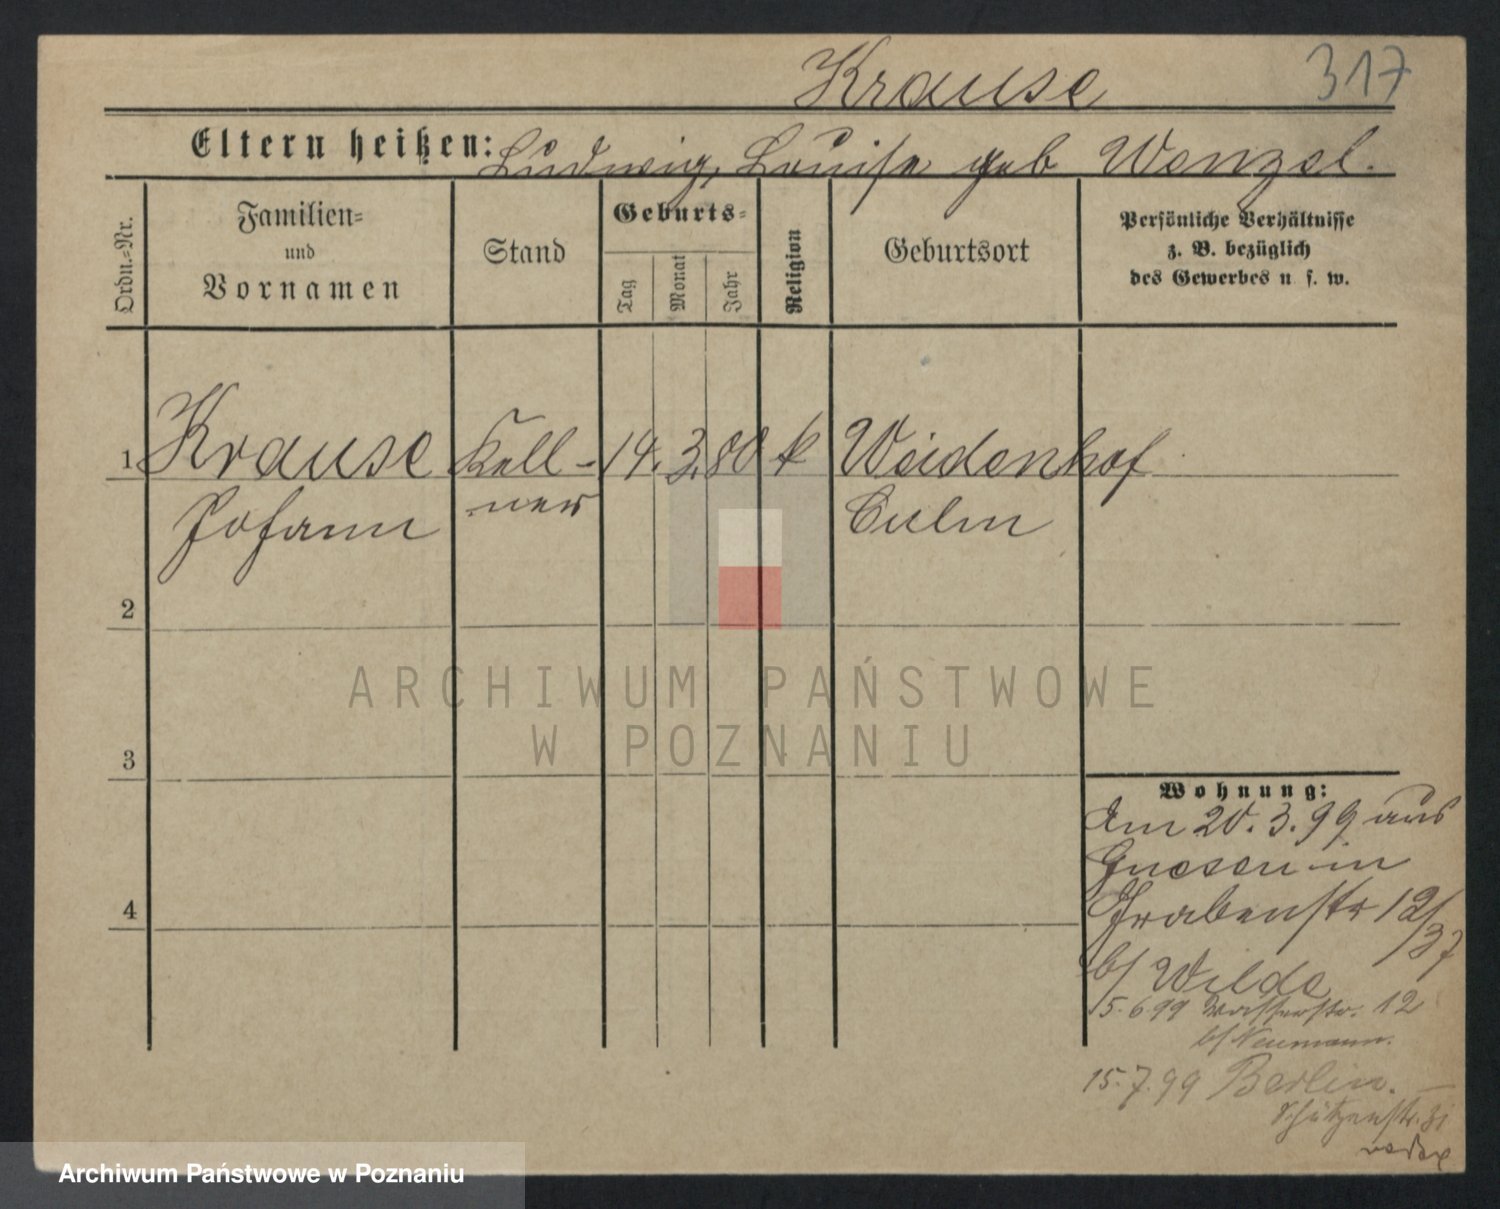 Krause
317
Eltern heißen: Ludwig, Louise geb Wenzel.
Ordn.-Nr.
Familien-
und
Vornamen
Stand
Geburts-
Tag
Monat
Jahr
Religion
Geburtsort
Persönliche Verhältnisse
z. B. bezüglich
des Gewerbes u. s. w.
1 Krause Kell- 14. 3. 80 k Weidenhof
Johann ner Culm
2
ARCHIWUM PAŃSTWOWE
W POZNANIU
3
Wohnung:
Am 20.3.99 aus
Gnesen in
Grabenstr 12/37
b/ Wilde
5.6.99 Wasserstr. 12
b/ Neumann.
4
15.7.99 Berlin.
Schützenstr. 31
Archiwum Państwowe w Poznaniu